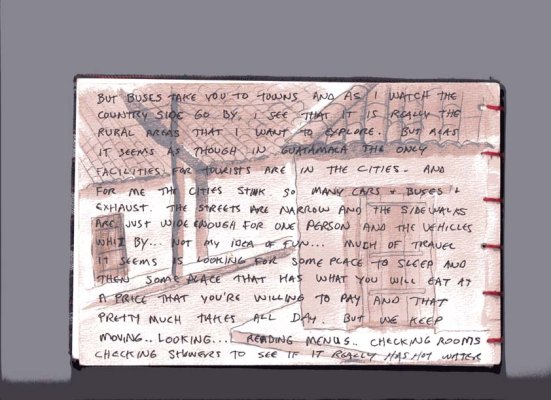 BUT BUSES TAKE YOU TO TOWNS AND AS I WATCH THE
COUNTRY SIDE GO BY. I SEE THAT IT IS REALLY THE
RURAL AREAS THAT I WANT TO EXPLORE. BUT ALAS
IT SEEMS AS THOUGH IN GUATAMALA THE ONLY
FACILITIES FOR TOURISTS ARE IN THE CITIES. AND
FOR ME THE CITIES STINK SO MANY CARS & BUSES &
EXHAUST. THE STREETS ARE NARROW AND THE SIDEWALKS
ARE JUST WIDE ENOUGH FOR ONE PERSON AND THE VEHICLES
WHIZ BY... NOT MY IDEA OF FUN... MUCH OF TRAVEL
IT SEEMS IS LOOKING FOR SOME PLACE TO SLEEP AND
THEN SOME PLACE THAT HAS WHAT YOU WILL EAT AT
A PRICE THAT YOU'RE WILLING TO PAY AND THAT
PRETTY MUCH TAKES ALL DAY. BUT WE KEEP
MOVING.. LOOKING... READING MENUS.. CHECKING ROOMS
CHECKING SHOWERS TO SEE IF IT REALLY HAS HOT WATER